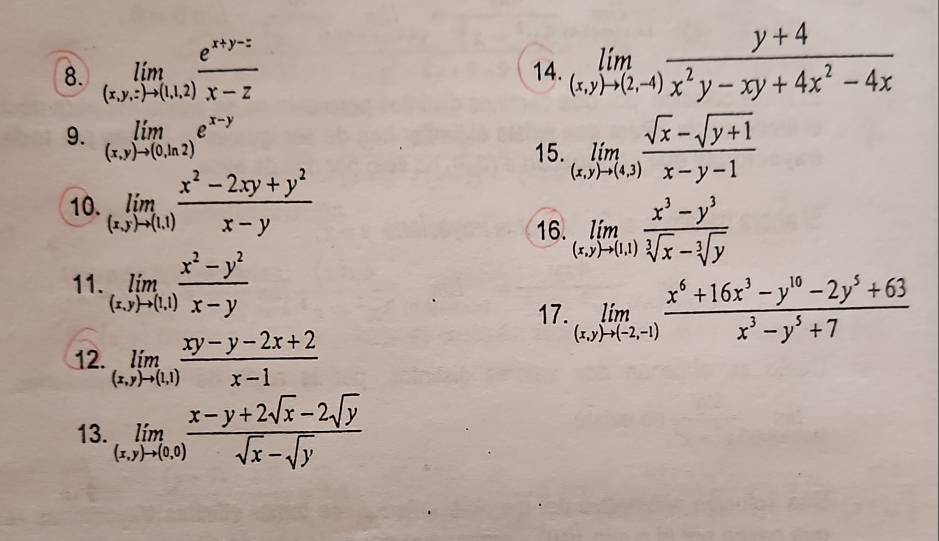 8. lím_{(x,y,z)→(1,1,2)} \frac{e^{x+y-z}}{x-z}
9. lím_{(x,y)→(0,ln 2)} e^{x-y}
10. lím_{(x,y)→(1,1)} \frac{x^2-2xy+y^2}{x-y}
11. lím_{(x,y)→(1,1)} \frac{x^2-y^2}{x-y}
12. lím_{(x,y)→(1,1)} \frac{xy-y-2x+2}{x-1}
13. lím_{(x,y)→(0,0)} \frac{x-y+2\sqrt{x}-2\sqrt{y}}{\sqrt{x}-\sqrt{y}}
14. lím_{(x,y)→(2,-4)} \frac{y+4}{x^2y-xy+4x^2-4x}
15. lím_{(x,y)→(4,3)} \frac{\sqrt{x}-\sqrt{y+1}}{x-y-1}
16. lím_{(x,y)→(1,1)} \frac{x^3-y^3}{\sqrt[3]{x}-\sqrt[3]{y}}
17. lím_{(x,y)→(-2,-1)} \frac{x^6+16x^3-y^{10}-2y^5+63}{x^3-y^5+7}